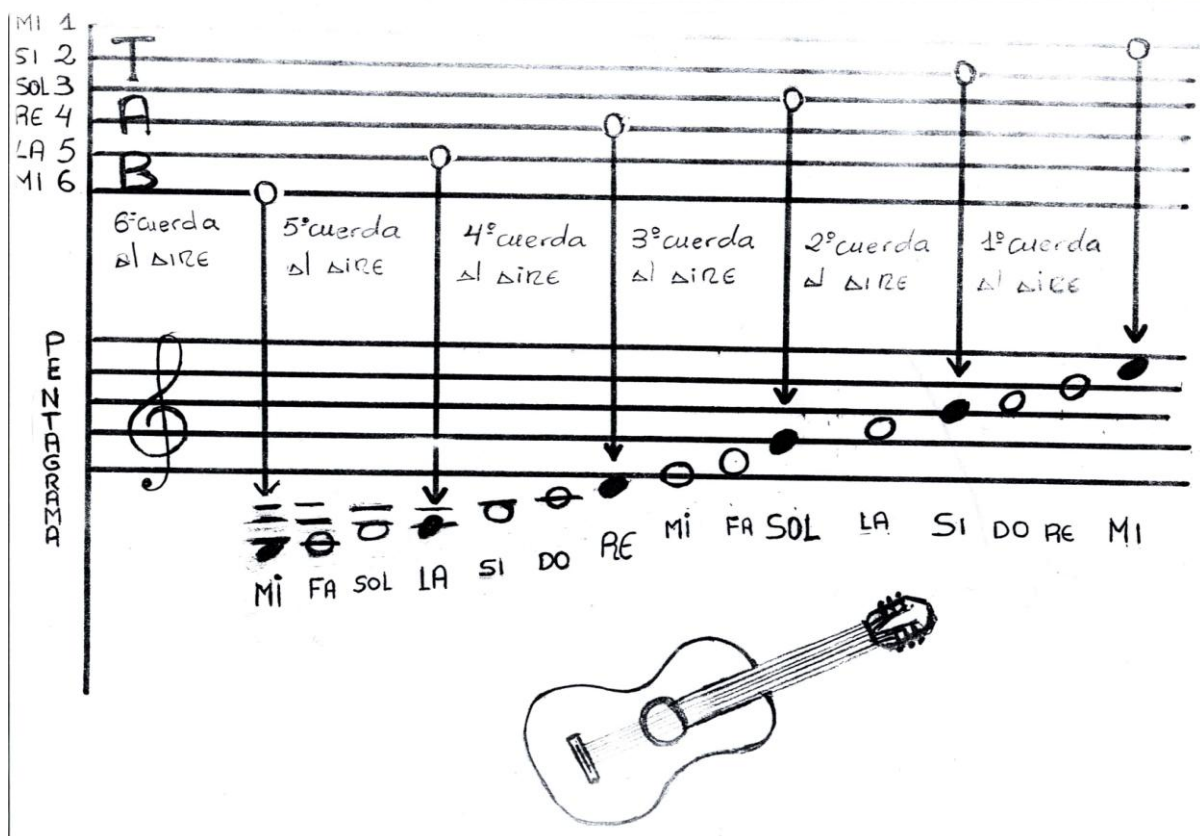 MI 1
SI 2
SOL 3
RE 4
LA 5
MI 6
T
A
B
6ª cuerda
al AIRE
5ª cuerda
al AiRE
4ª cuerda
al AiRE
3ª cuerda
al AiRE
2ª cuerda
al AIRE
1ª cuerda
al AiRE
PENTAGRAMA
Mi FA SOL LA SI DO RE Mi FA SOL LA SI DO RE MI